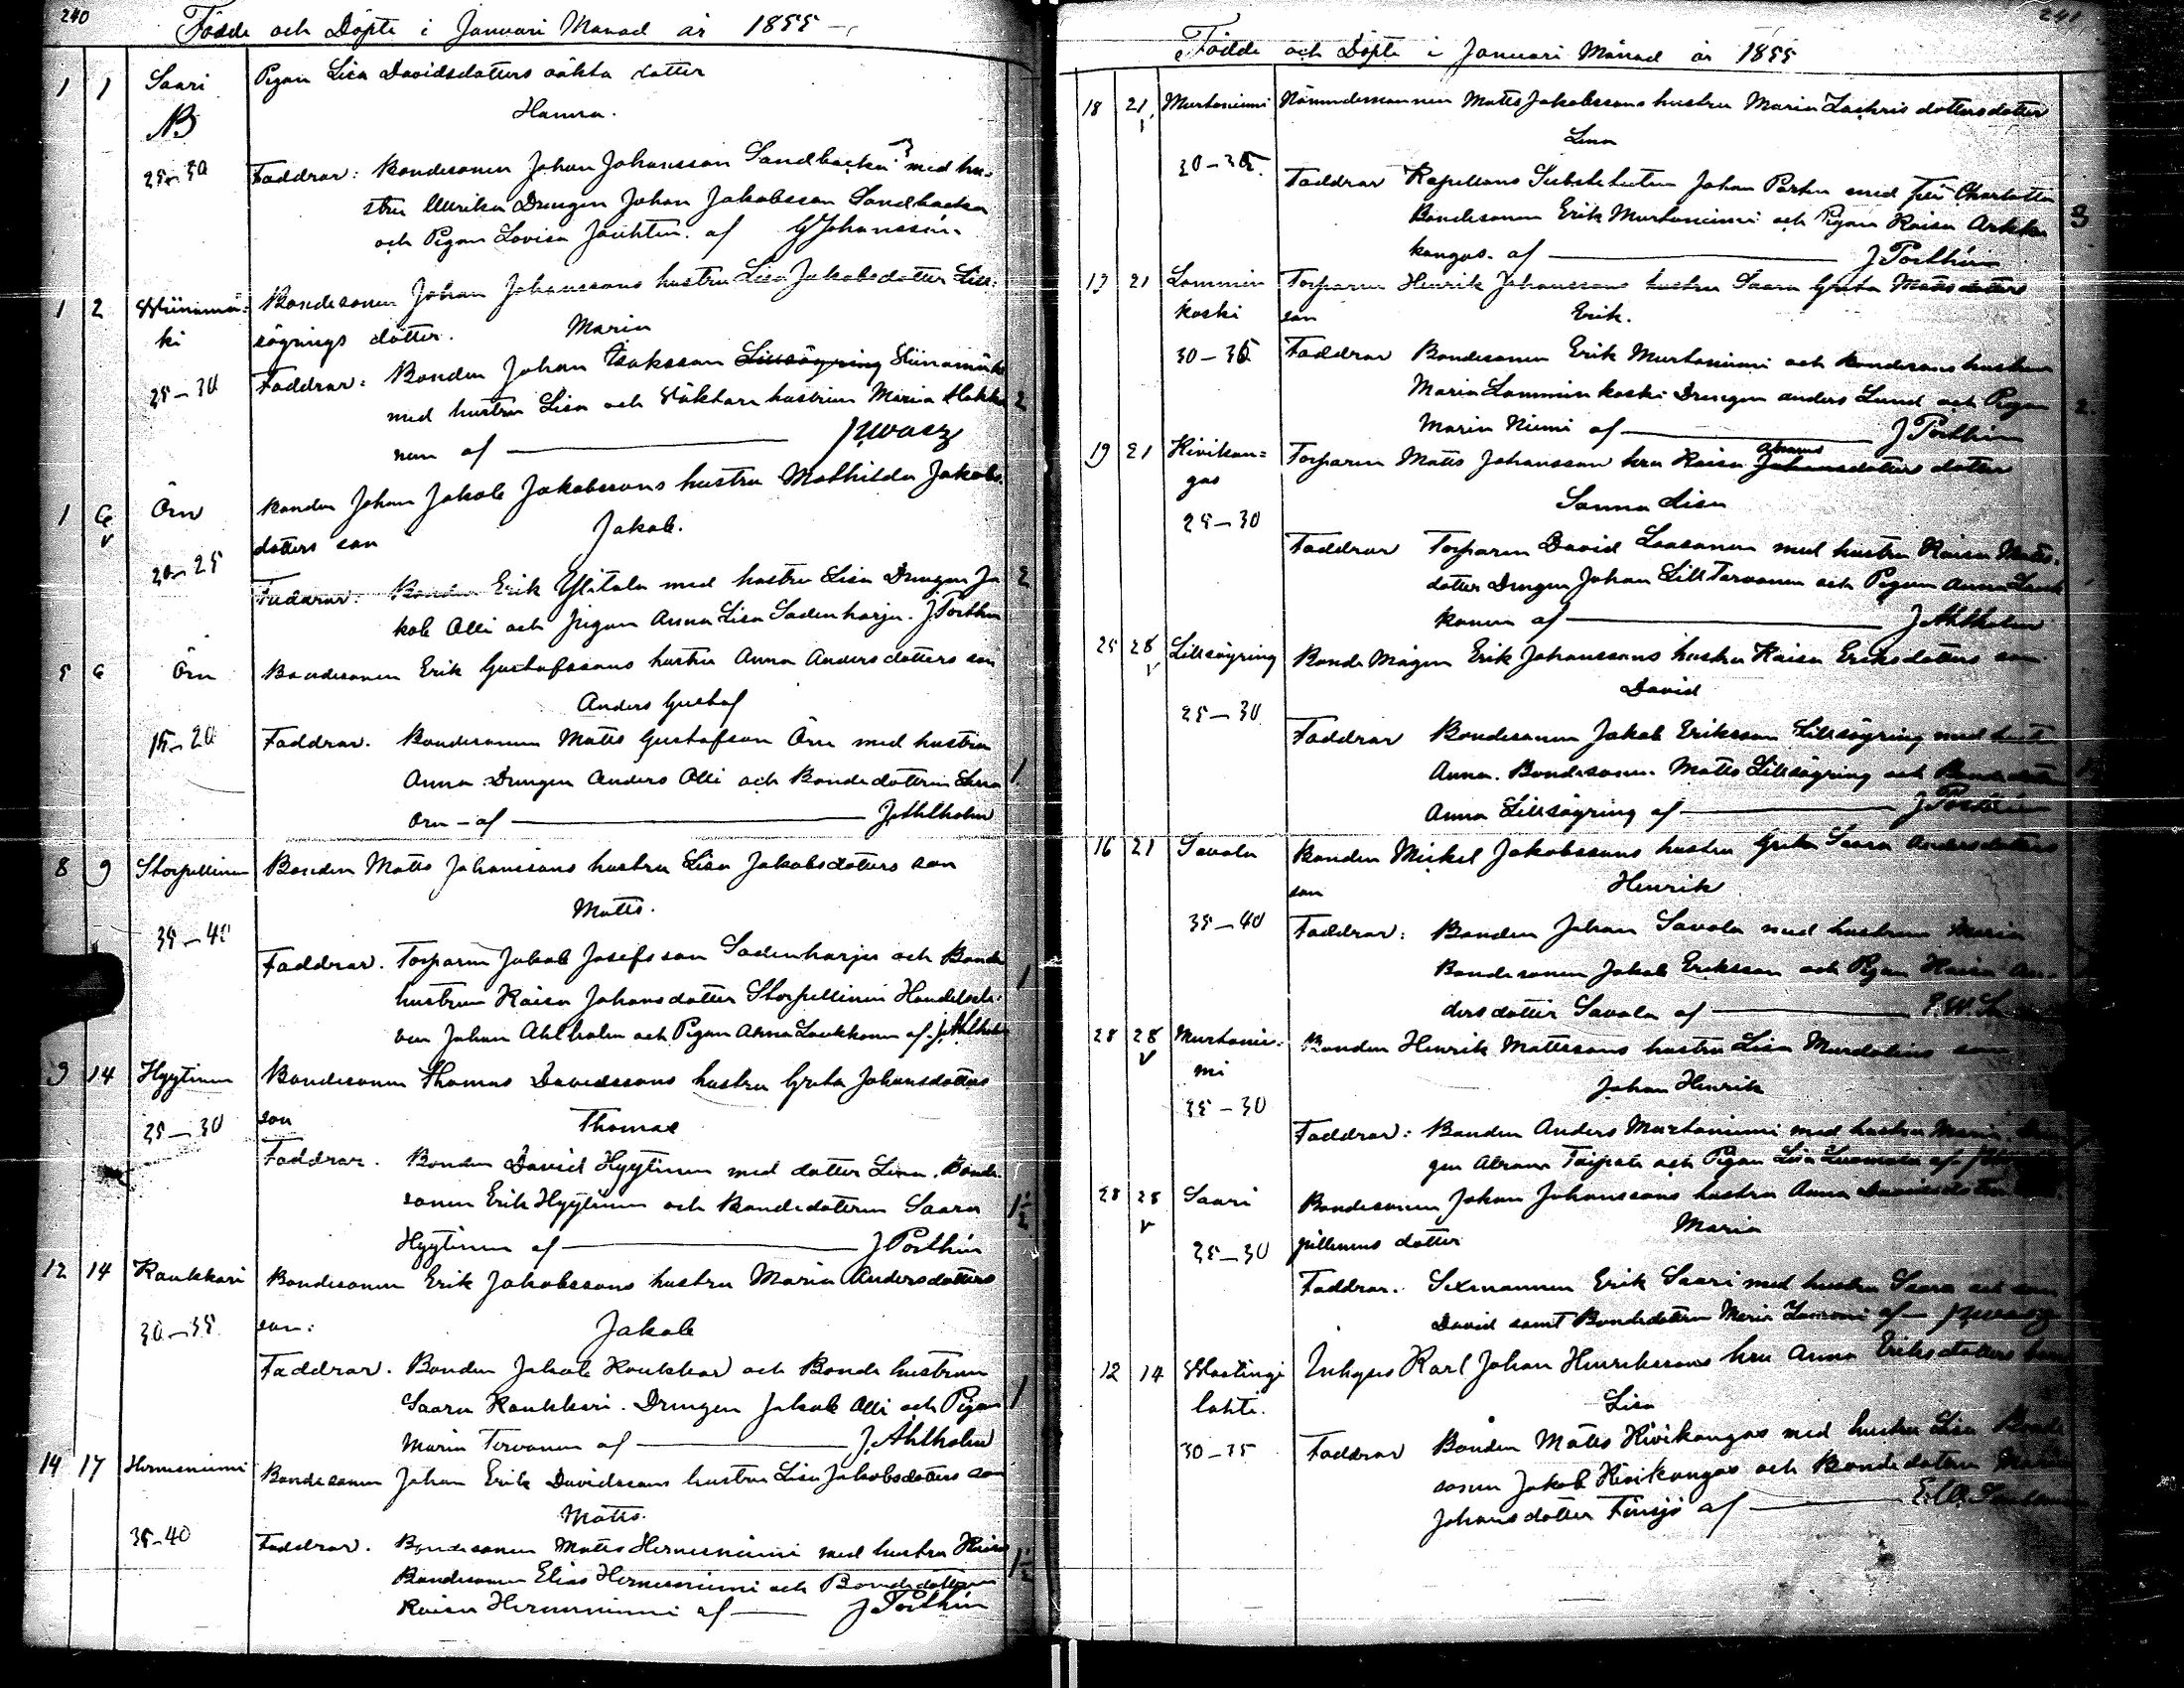 240
Födde och Döpte i Januari Månad år 1855
1 1 Saari Pigan Lisa Davidsdotters oäkta dotter
NB Hanna.
25-30 Faddrar: Bondesonen Johan Johansson Sandbacka med hu-
stru Ulrika Drengen Johan Jakobsson Sandbacka
och Pigan Lovisa af G Johansson
1 2 Wiinamä= Bondesonen Johan Johanssons hustru Lisa Jakobsdotter Lill-
ki sögrings dotter. Maria
25-30 Faddrar: Bonden Johan Isaksson Lillsögring Wiinamäki
med hustru Lisa och hustrun Maria Hakka
nen af J Uwasz
1 6 Örn Bonden Johan Jakob Jakobssons hustru Mathilda Jakobs-
dotters son Jakob.
20-25 Faddrar: Bonden Erik Ylitalo med hustru Lisa Drengen Ja
kob Olli och pigan Anna Lisa Sadenharju. J Porthin
5 6 Örn Bondesonen Erik Gustafssons hustru Anna Anders dotters son
Anders Gustaf
15-20 Faddrar. Bondesonen Matts Gustafsson Örn med hustru
Anna. Drengen Anders Olli och Bondedottren Lena
Örn - af J Ahlholm
8 9 Storpellinen Bonden Matts Johanssons hustru Lisa Jakobsdotters son
Matts.
35-40
Faddrar. Torparen Jakob Josefsson Sadenharju och Bonde
hustrun Kaisa Johansdotter Storpellinen
ven Johan Ahlholm och Pigan Anna Laukkonen af J Ahlholm
9 14 Hyytinen Bondesonen Thomas Davidssons hustru Greta Johansdotters
25-30 son Thomas
Faddrar. Bonden David Hyytinen med dotter Lena. Bonde
sonen Erik Hyytinen och Bondedottren Saara
Hyytinen af J Porthin
12 14 Kaukkari Bondesonen Erik Jakobssons hustru Maria Andersdotters
30-35 son: Jakob
Faddrar. Bonden Jakob Kaukkar och Bonde hustrun
Saara Kaukkari. Drengen Jakob Olli och Pigan
Maria Tervonen af J. Ahlholm
14 17 Hernesniemi Bondesonen Johan Erik Davidssons hustru Lisa Jakobsdotters son
Matts.
35-40 Faddrar. Bondesonen Matts Hernesniemi med hustru Kaisa
Bondesonen Elias Hernesniemi och Bondedottren
Kaisa Hernesniemi af J Porthin
241
Födde och Döpte i Januari Månad år 1855
18 21 Murtoniemi Nämndemannen Matts Jakobssons hustru Maria Zachris dotters dotter
Lena
30-35 Faddrar Kapellans Substituten Johan Porthin med fru Charlotta
Bondesonen Erik Murtoniemi och Pigan Kaisa Arkku
kangas. af J Porthin
19 21 Lammin Torparen Henrik Johanssons hustru Saara Greta Mattsdotters
koski son Erik.
30-35 Faddrar Bondesonen Erik Murtoniemi och bondesons hustrun
Maria Lamminkoski Drengen Anders Lund och Pigan
Maria Niemi af J Porthin
19 21 Kivikan= Torparen Matts Johansson hru Kaisa Johansdotters dotter
gas Sanna Lisa
25-30
Faddrar Torparen David Laasanen med hustru Kaisa Matts-
dotter Drengen Johan Lill Tervonen och Pigan Anna Lauk
konen af J Ahlholm
25 28 Lillsögring Bonde Mågen Erik Johanssons hustru Kaisa Eriksdotters son
David
25-30
Faddrar Bondesonen Jakob Eriksson Lillsögring med hustru
Anna. Bondesonen Matts Lillsögring och Bondedottren
Anna Lillsögring af J Porthin
16 21 Savola Bonden Mickel Jakobssons hustru Greta Saara Andersdotters
son Henrik
35-40 Faddrar: Bonden Johan Savola med hustrun Maria
Bondesonen Jakob Eriksson och Pigan Kaisa An-
dersdotter Savola af
28 28 Murtonie= Bonden Henrik Mattssons hustru Lisa Murdotins son
mi Johan Henrik
25-30
Faddrar: Bonden Anders Murtoniemi med hustru Maria Dren
gen Abram Taipale och Pigan Lisa Luomala af
28 28 Saari Bondesonen Johan Johanssons hustru Anna Davidsdotter
25-30 pellinens dotter Maria
Faddrar. Sexmannen Erik Saari med hustru Saara och son
David samt Bondedottren Maria af J Uwasz
12 14 Wastinge Inhyses Karl Johan Henrikssons hru Anna Eriksdotters
lahti. Lisa
30-35 Faddrar Bonden Matts Kivikangas med hustru Lisa Bonde
sonen Jakob Kivikangas och Bondedottren
Johansdotter Finsjö af